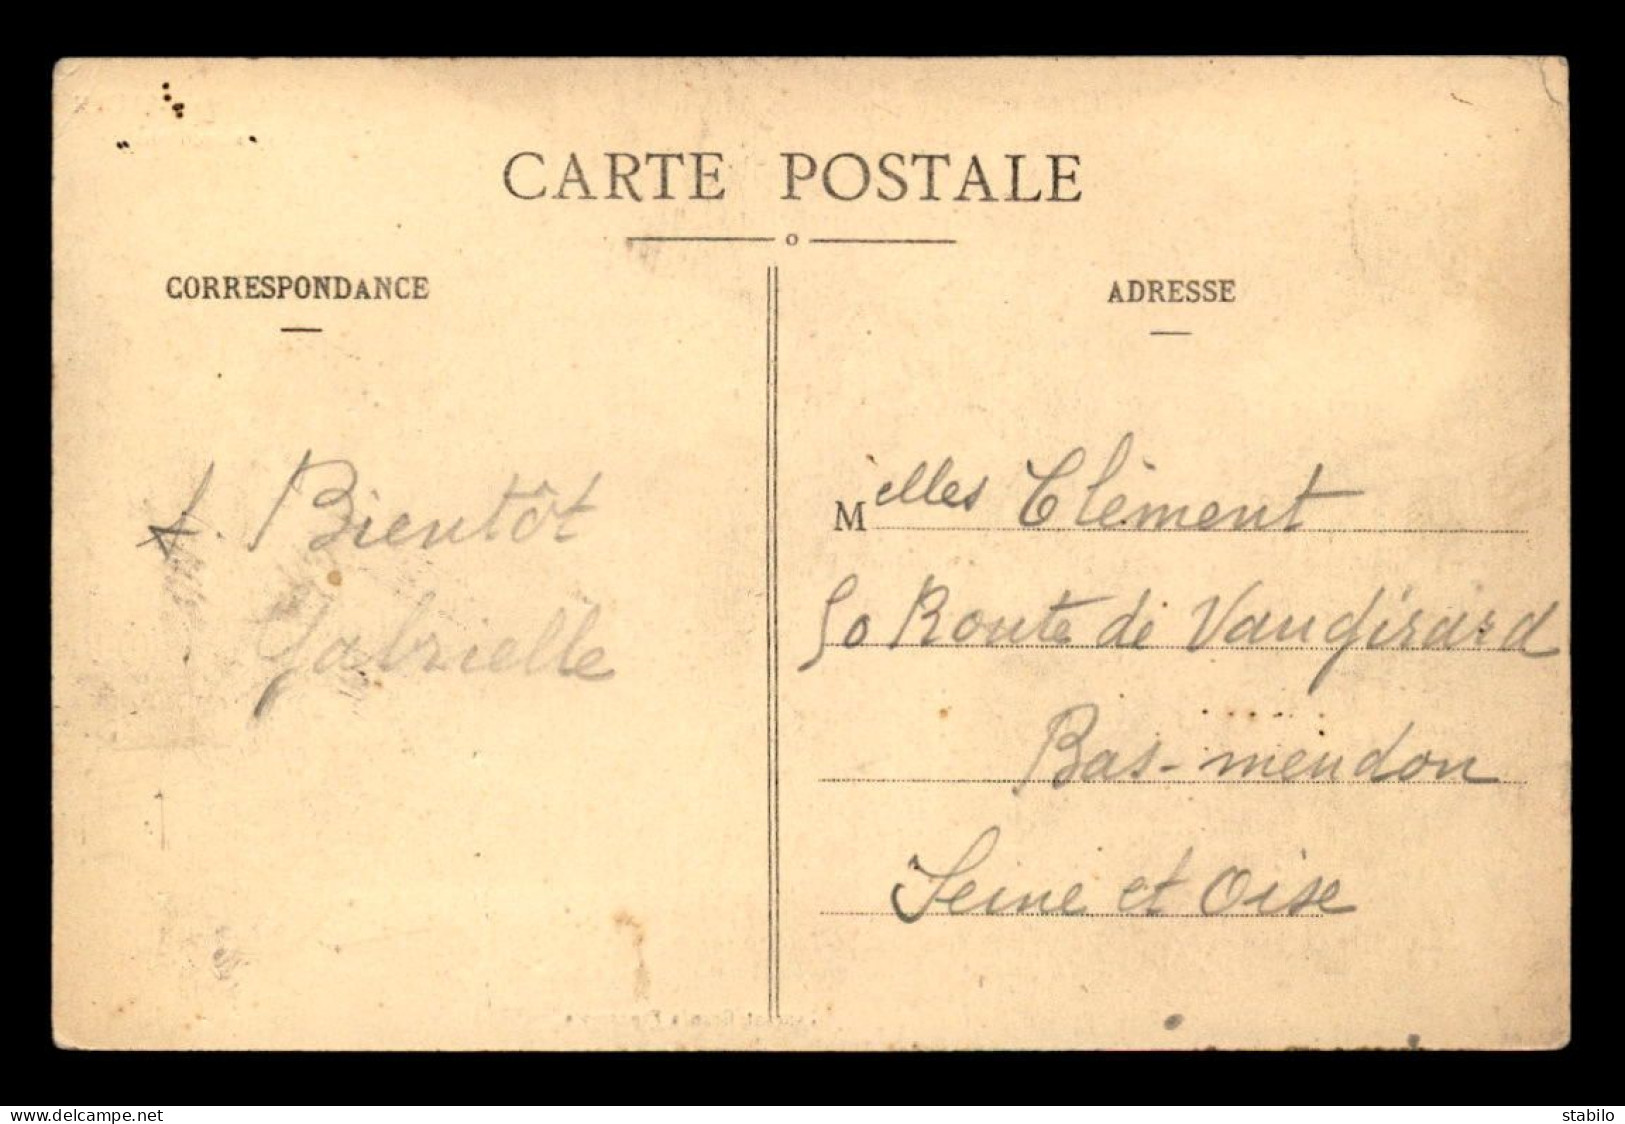 CARTE POSTALE
CORRESPONDANCE
ADRESSE
A. Bientôt
Gabrielle
Melles Clément
50 Route de Vaugirard
Bas-meudon
Seine et Oise
www.delcampe.net
stabilo